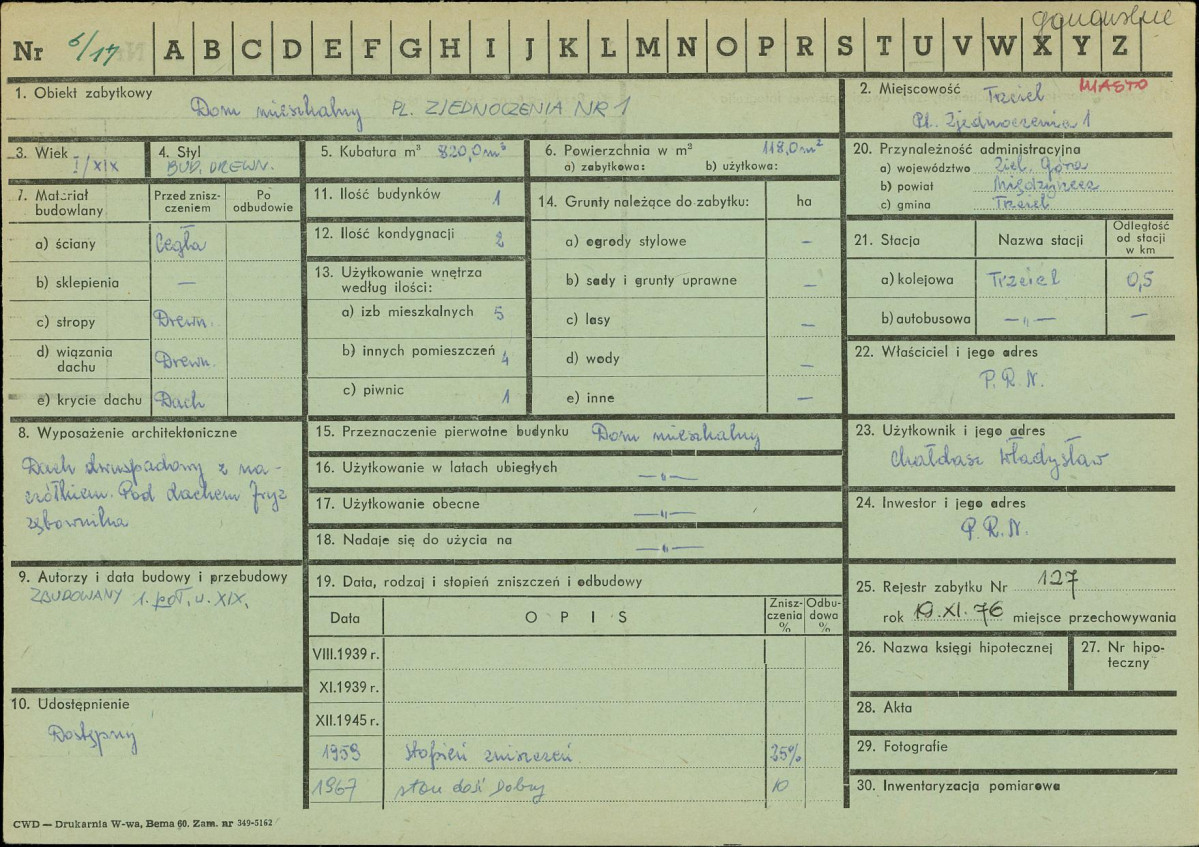 Nr 6/17 A B C D E F G H I J K L M N O P R S T U V W X Y Z
1. Obiekt zabytkowy
Dom mieszkalny PL. ZJEDNOCZENIA NR 1
2. Miejscowość Trzciel MIASTO
Pl. Zjednoczenia 1
3. Wiek
I/XIX
4. Styl
BUD. DREWN.
5. Kubatura m³ 820,0m³
6. Powierzchnia w m² 118,0m²
a) zabytkowa: b) użytkowa:
20. Przynależność administracyjna
a) województwo Ziel. Góra
b) powiat Międzyrzecz
c) gmina Trzciel
7. Materiał budowlany
Przed znisz-
czeniem
Po
odbudowie
a) ściany Cegła
b) sklepienia —
c) stropy Drewn.
d) wiązania
dachu Drewn.
e) krycie dachu Dach
11. Ilość budynków 1
12. Ilość kondygnacji 2
13. Użytkowanie wnętrza
według ilości:
a) izb mieszkalnych 5
b) innych pomieszczeń 4
c) piwnic 1
14. Grunty należące do zabytku: ha
a) ogrody stylowe —
b) sady i grunty uprawne —
c) lasy —
d) wody —
e) inne —
21. Stacja Nazwa stacji
Odległość
od stacji
w km
a) kolejowa Trzciel 0,5
b) autobusowa —„— —
22. Właściciel i jego adres
P.R.N.
8. Wyposażenie architektoniczne
Dach dwuspadowy z na-
czółkiem. Pod dachem fryz
ząbownika
15. Przeznaczenie pierwotne budynku Dom mieszkalny
16. Użytkowanie w latach ubiegłych —„—
17. Użytkowanie obecne —„—
18. Nadaje się do użycia na —„—
23. Użytkownik i jego adres
Chałdasz Władysław
24. Inwestor i jego adres
P.R.N.
9. Autorzy i data budowy i przebudowy
ZBUDOWANY 1. poł. w. XIX.
19. Data, rodzaj i stopień zniszczeń i odbudowy
Data OPIS
Znisz-
czenia
%
Odbu-
dowa
%
VIII.1939 r.
XI.1939 r.
XII.1945 r.
1959 stopień zniszczeń 25%
1967 stan dość dobry 10
25. Rejestr zabytku Nr 127
rok 19.XI.76 miejsce przechowywania
26. Nazwa księgi hipotecznej
27. Nr hipo-
teczny
10. Udostępnienie
Dostępny
28. Akta
29. Fotografie
30. Inwentaryzacja pomiarowa
CWD — Drukarnia W-wa, Bema 60. Zam. nr 349-5162